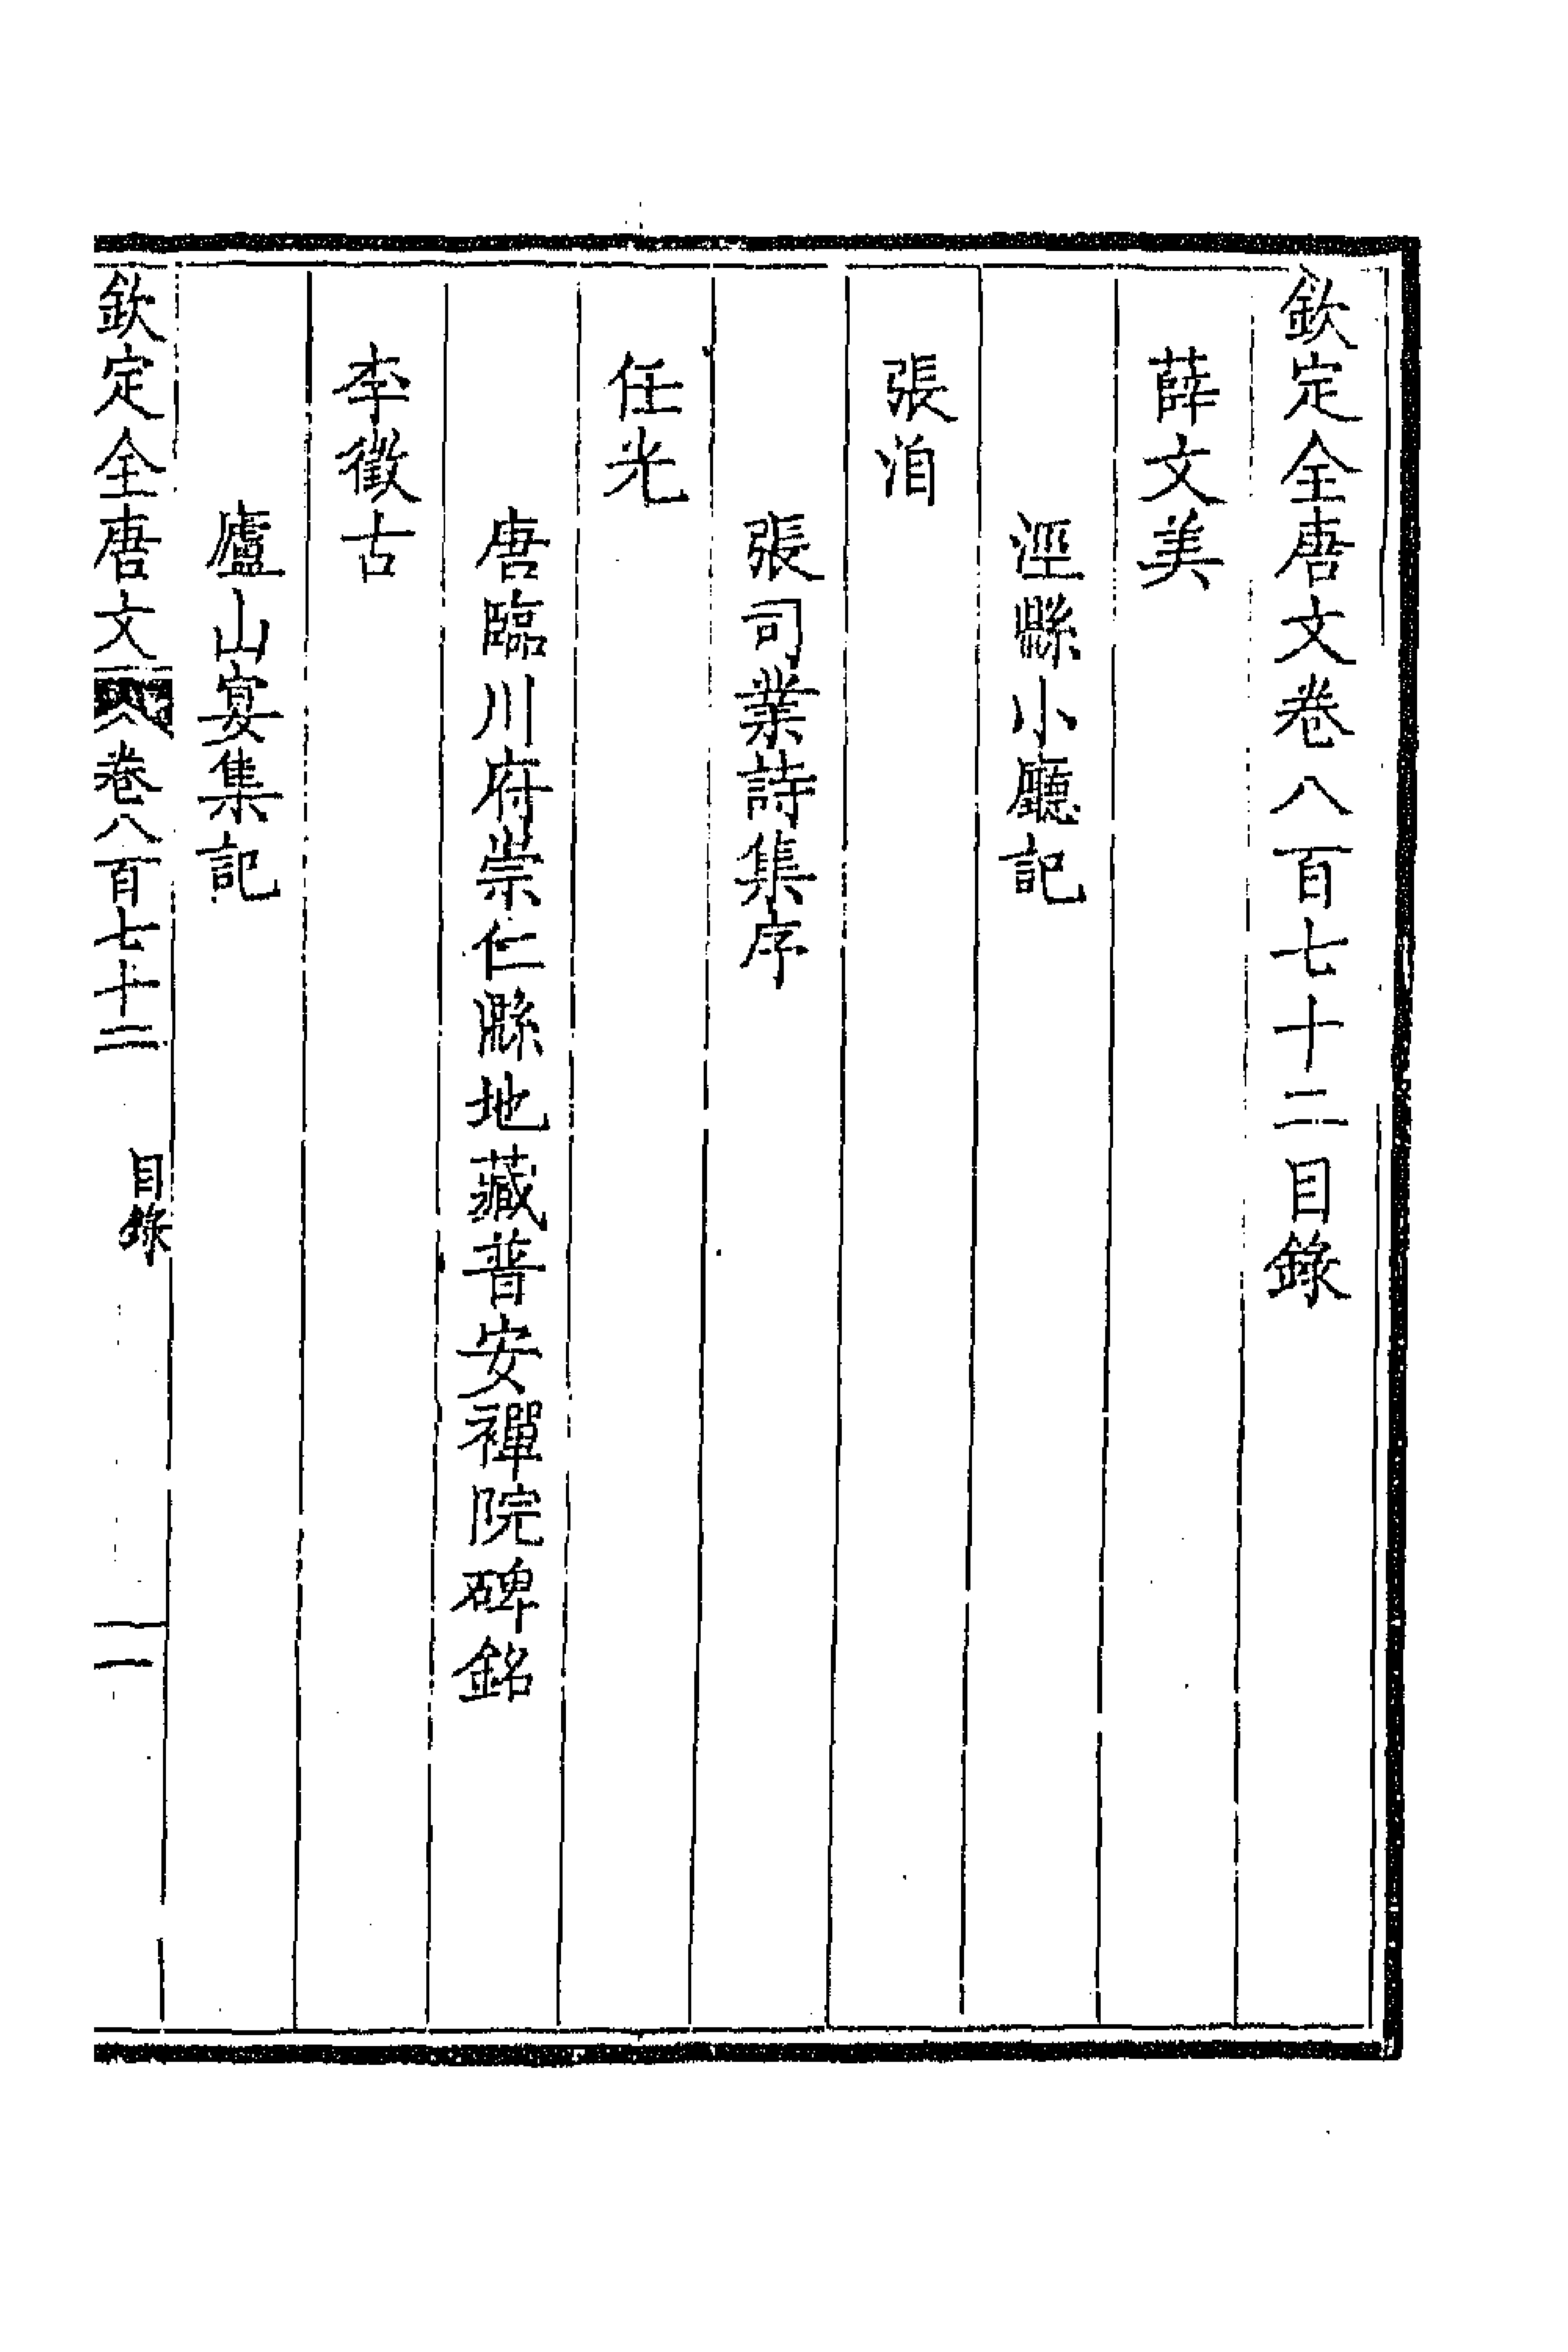 欽定全唐文卷八百七十二目錄
薛文美
涇縣小廳記
張洎
張司業詩集序
任光
唐臨川府崇仁縣地藏普安禪院碑銘
李徵古
廬山宴集記
欽定全唐文 卷八百七十二 目錄 一